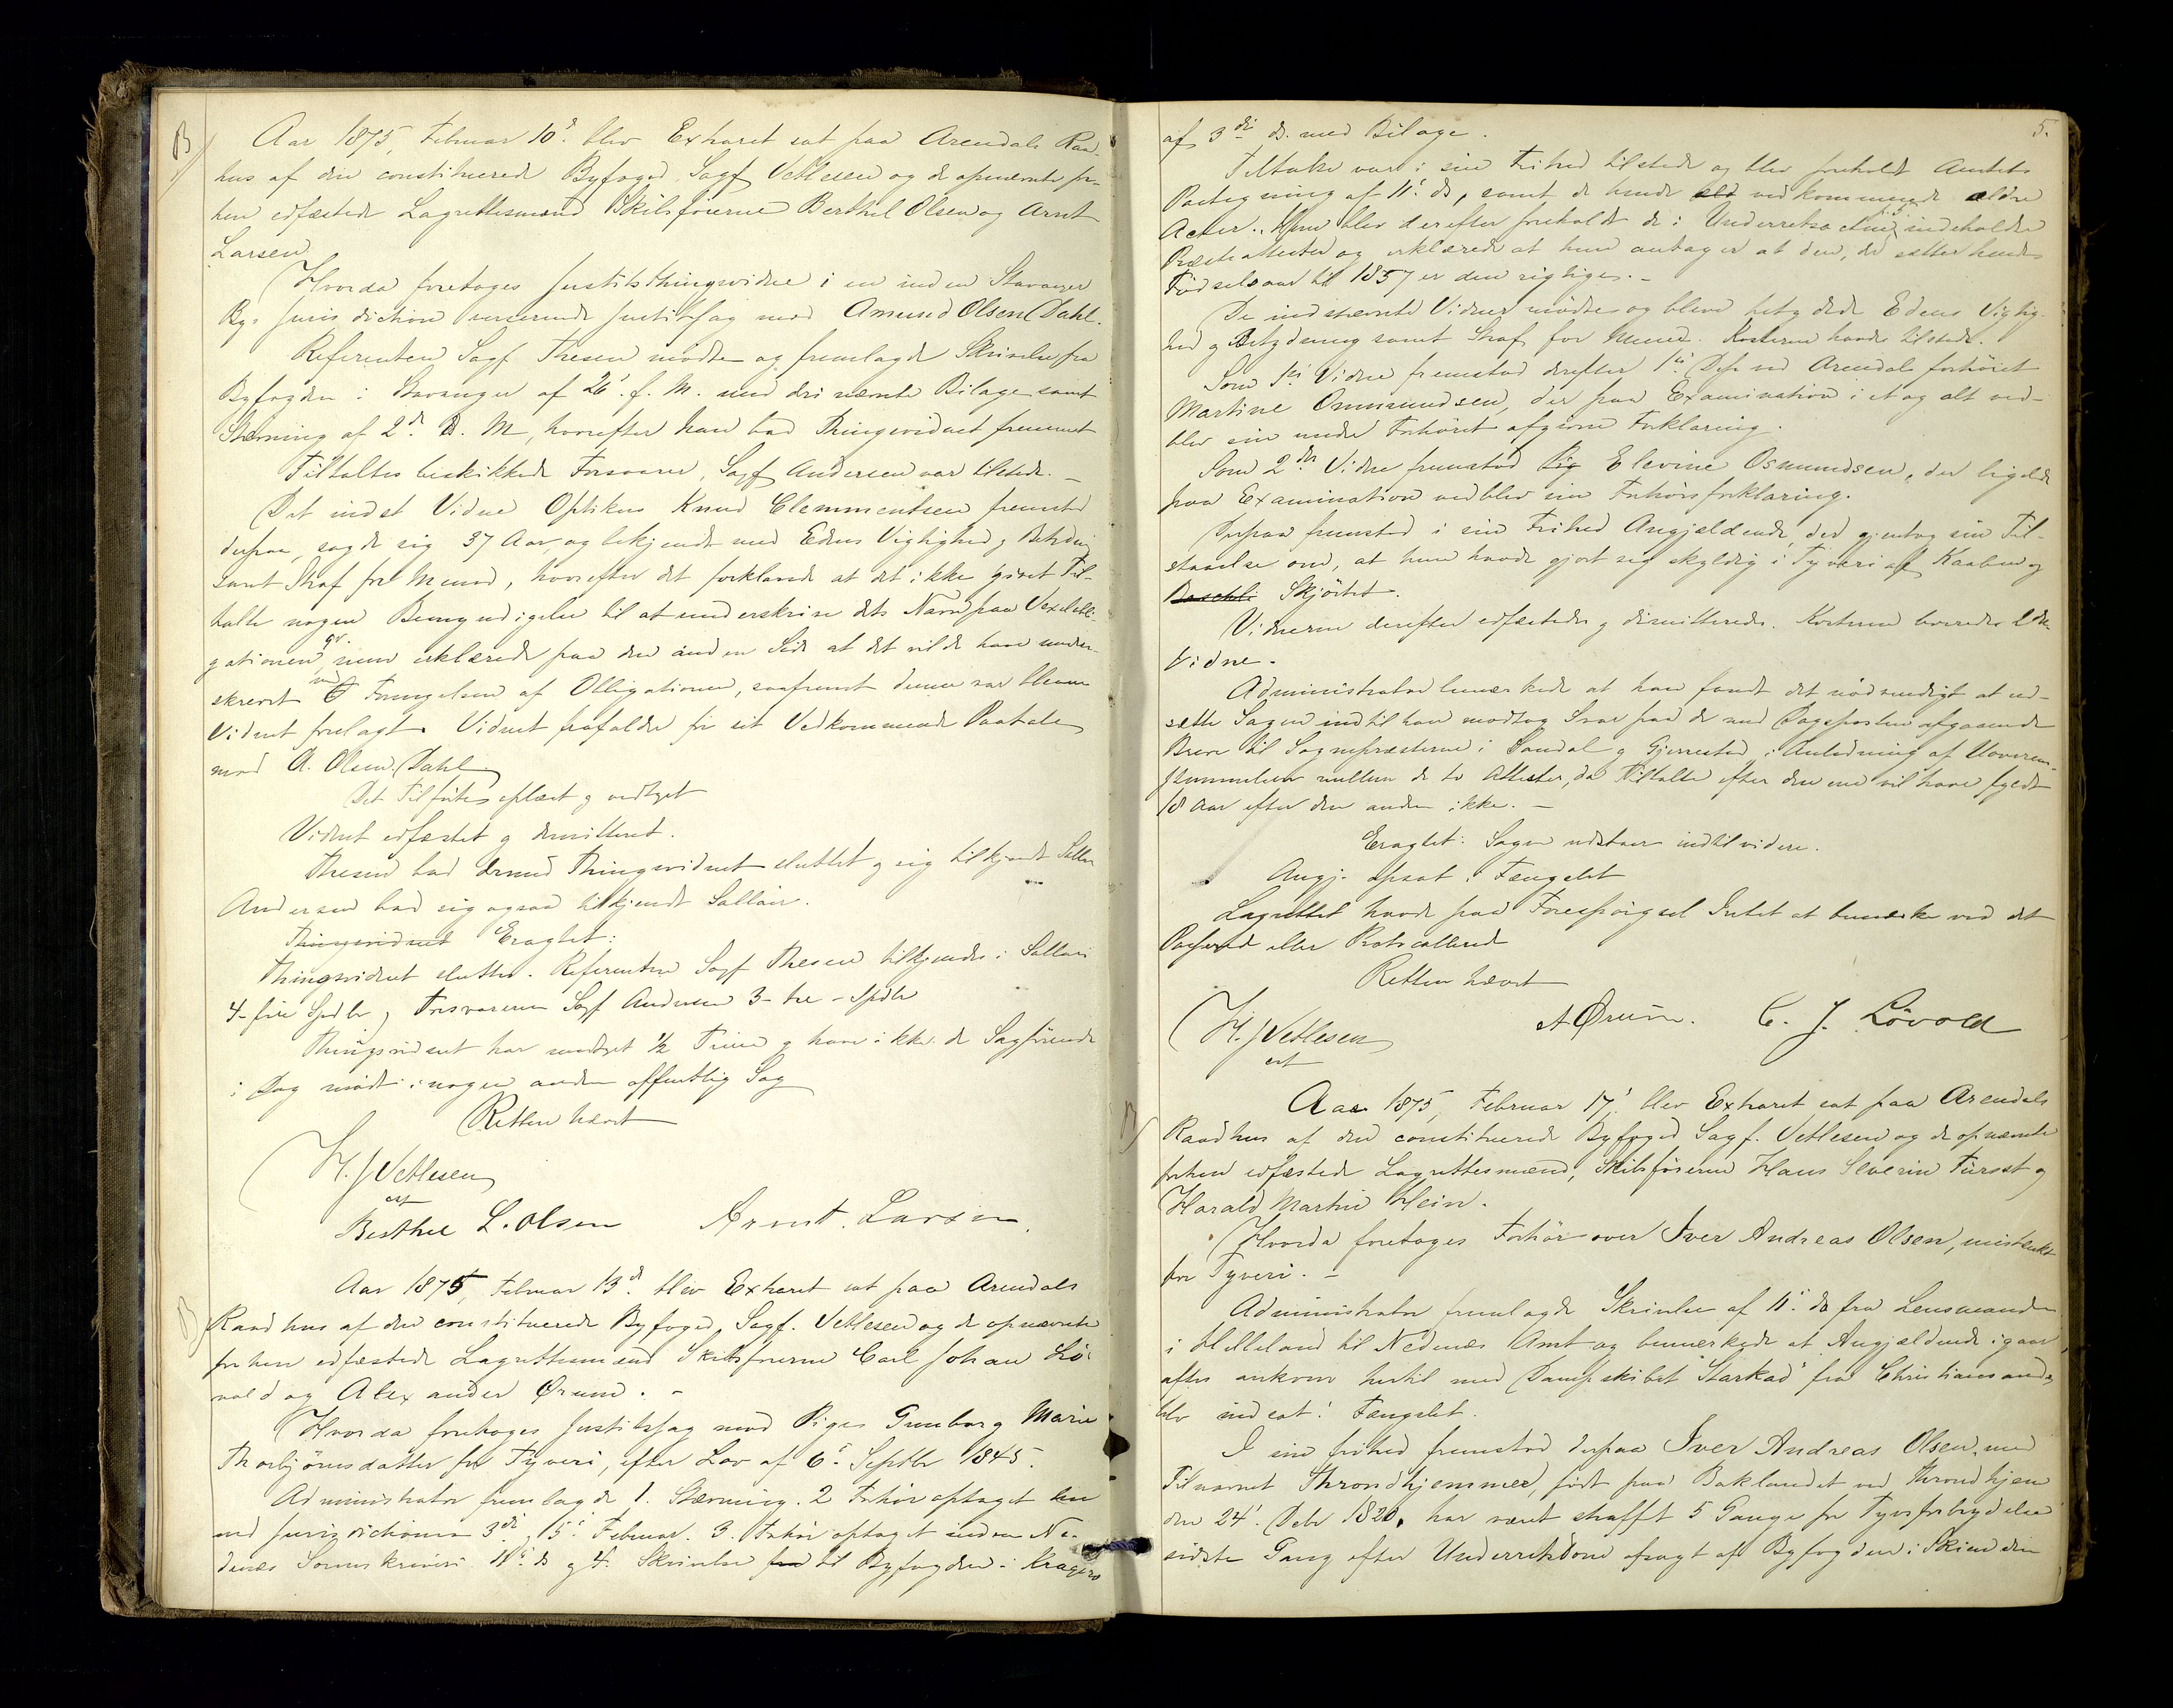 B
Aar 1875, Februar 10d. blev Extraret sat paa Arendals Raad-
hus af den constituerede Byfoged, Sagf Vetlesen og de opnævnte for-
hen edfæstede Lagrettesmænd Skibsförerne Berthel Olsen og Arnt
Larsen
Hvorda foretoges Justitsthingsvidne i en inden Stavanger
Bys Jurisdiction verserende Justitssag mod Amund Olsen Dahl.
Referenten Sagf Thesen mødte og fremlagde Skrivelse fra
Byfogden i Stavanger af 26'. f. M. med dri nævnte Bilage samt
Stævning af 2d. D. M, hvorefter han bad Thingsvidnet fremmet
Tiltaltes beskikkede Forsvarer, Sagf Andersen var tilstede. –
Det indst Vidne Optikus Knud Clemmentsen fremstod
derpaa, sagde sig 37 Aar, og bekjendt med Edens Vigtighed og Betydning
samt Straf for Meened, hvorefter det forklarede at det ikke givet Til-
talte nogen Bemyndigelse til at underskrive dets Navn paa Vexelobli-
gationen, men erklærede paa den anden Side at det vilde have under-
skrevet ved Fornyelsen af Obligationen, saafremt denne var bleven
Vidnet forelagt. Vidnet frafaldt for sit Vedkommende Paatale
mod A. Olsen Dahl
Det Tilförte oplæst og vedtaget
Vidnet edfæstet og demitteret.
Thesen bad dermed Thingsvidnet sluttet og sig tilkjendt Sallair
Andersen bad sig ogsaa tilkjendt Sallair.
Thingsvidnet Eragtet:
Thingsvidnet sluttes. Referenten Sagf Thesen tilkjendes i Sallair
4 - fire Spdlr, Forsvareren Sagf Andersen 3 - tre - Spdlr
Thingsvidnet har medtaget ½ Time og have ikke de Sagförende
i Dag mödt i nogen anden offentlig Sag
Retten hævet
H. J Vetlesen
cst
Berthel L. Olsen Arnt. Larsen.
B
Aar 1875, Februar 13d. blev Extraret sat paa Arendals
Raadhus af den constituerede Byfoged, Sagf. Vetlesen og de opnævnte
forhen edfæstede Lagrettesmænd Skibsförerne Carl Johan Lö-
vold og Alexander Ørum. –
Hvorda foretoges Justitssag mod Pigen Gunborg Marie
Thorbjörnsdatter for Tyveri, efter Lov af 6' Septbr 1845.
Administrator fremlagde 1. Stævning. 2 Forhör optaget her
ved Jurisdictionen 3di, 5' Februar. 3. Forhör optaget inden Ne-
denæs Sorenskriveri 11' ds og 4. Skrivelse fra til Byfogden i Kragerö
5.
af 3die ds. med Bilage.
Tiltalte var i sin Frihed tilstede og blev foreholdt Amtets
Paategning af 11' ds, samt de hende vedkommende ældre
Acter. Hun blev derefter foreholdt de i Underretsacten indeholdte
Præsteattester og erklærede at hun antager at den, der sætter hendes
Födselsaar til 1857 er den rigtige. –
De indstævnte Vidner mödte og bleve betydede Edens Vigtig-
hed og Betydning samt Straf for Meened. Kosterne havdes tilstede.
Som 1ste Vidne fremstod derefter 1ste Dep. ved Arendals forhöret
Martine Ommundsen, der paa Examination i et og alt ved-
blev sin under Forhöret afgivne Forklaring.
Som 2det Vidne fremstod Pig Elevine Osmundsen, der ligeledes
paa Examination vedblev sin Forhörsforklaring.
Derpaa fremstod i sin Frihed Angjældende, der gjentog sin Til-
staaelse om, at hun havde gjort sig skyldig i Tyveri af Kaaben og
Skjörtet.
Vidnerne derefter edfæstedes og dimitteredes. Kosterne leveredes 2det
Vidne.
Administrator bemærkede at han fandt det nödvendigt at ud-
sætte Sagen indtil han modtog Svar paa de med Dagsposten afgaaende
Breve til Sognepræsterne i Sandal og Gjerrestad, i Anledning af Uoverens-
stemmelsen mellem de to Attester, da Tiltalte efter den ene vil have fyldt
18 Aar efter den anden ikke. –
Eragtet: Sagen udstaar indtil videre.
Angj. opsat i Fængslet
Lagrettet havde paa Forespörgsel Intet at bemærke ved det
Passerede eller Protocollerede
Retten hævet
H. J Vetlesen A Ørum. C. J. Lövold
cst
B
Aar 1875, Februar 17' blev Extraret sat paa Arendals
Raadhus af den constituerede Byfoged Sagf. Vetlesen og de opnævnte
forhen edfæstede Lagrettesmænd, Skibsförerne Hans Severin Fürst og
Harald Martin Klein.
Hvorda foretoges Forhör over Iver Andreas Olsen, mistænkt
for Tyveri. –
Administrator fremlagde Skrivelse af 11' ds fra Lensmanden
i Helleland til Nedenæs Amt og bemærkede at Angjældende igaar
aftes ankom hertil med Dampskibet "Starkad" fra Christiansand og
blev indsat i Fængslet.
I sin frihed fremstod derpaa Iver Andreas Olsen, med
Tilnavnet Throndhjemmer, födt paa Baklandet ved Throndhjem
den 24' Debr 1820, har været straffet 5 Gange for Tyvsforbrydelse
sidste Gang efter Underretsdom afsagt af Byfogden i Skien den